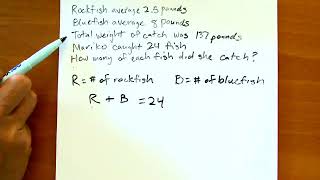 Rockfish average 2.5 pounds
Bluefish average 8 pounds
Total weight of catch was 137 pounds
Mariko caught 24 fish
How many of each fish did she catch?
R = # of rockfish B = # of bluefish
R + B = 24